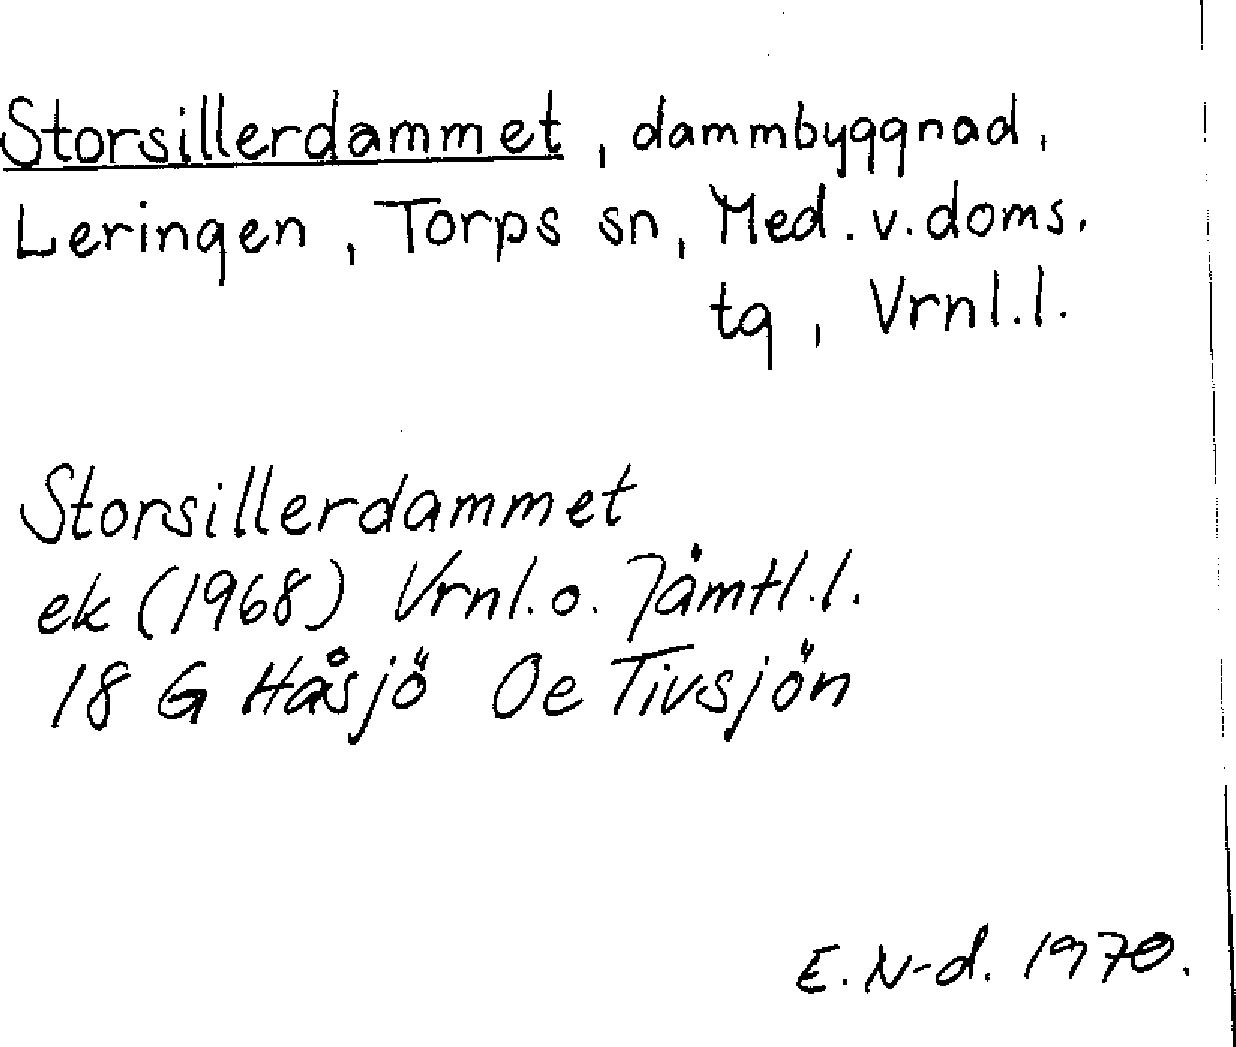 Storsillerdammet, dammbyggnad,
Leringen, Torps sn, Med. v. doms.
tg, Vrnl.l.
Storsillerdammet
ek (1968) Vrnl. o. Jämtl.l.
18 G Håsjö Oe Tivsjön
E. N-d. 1970.